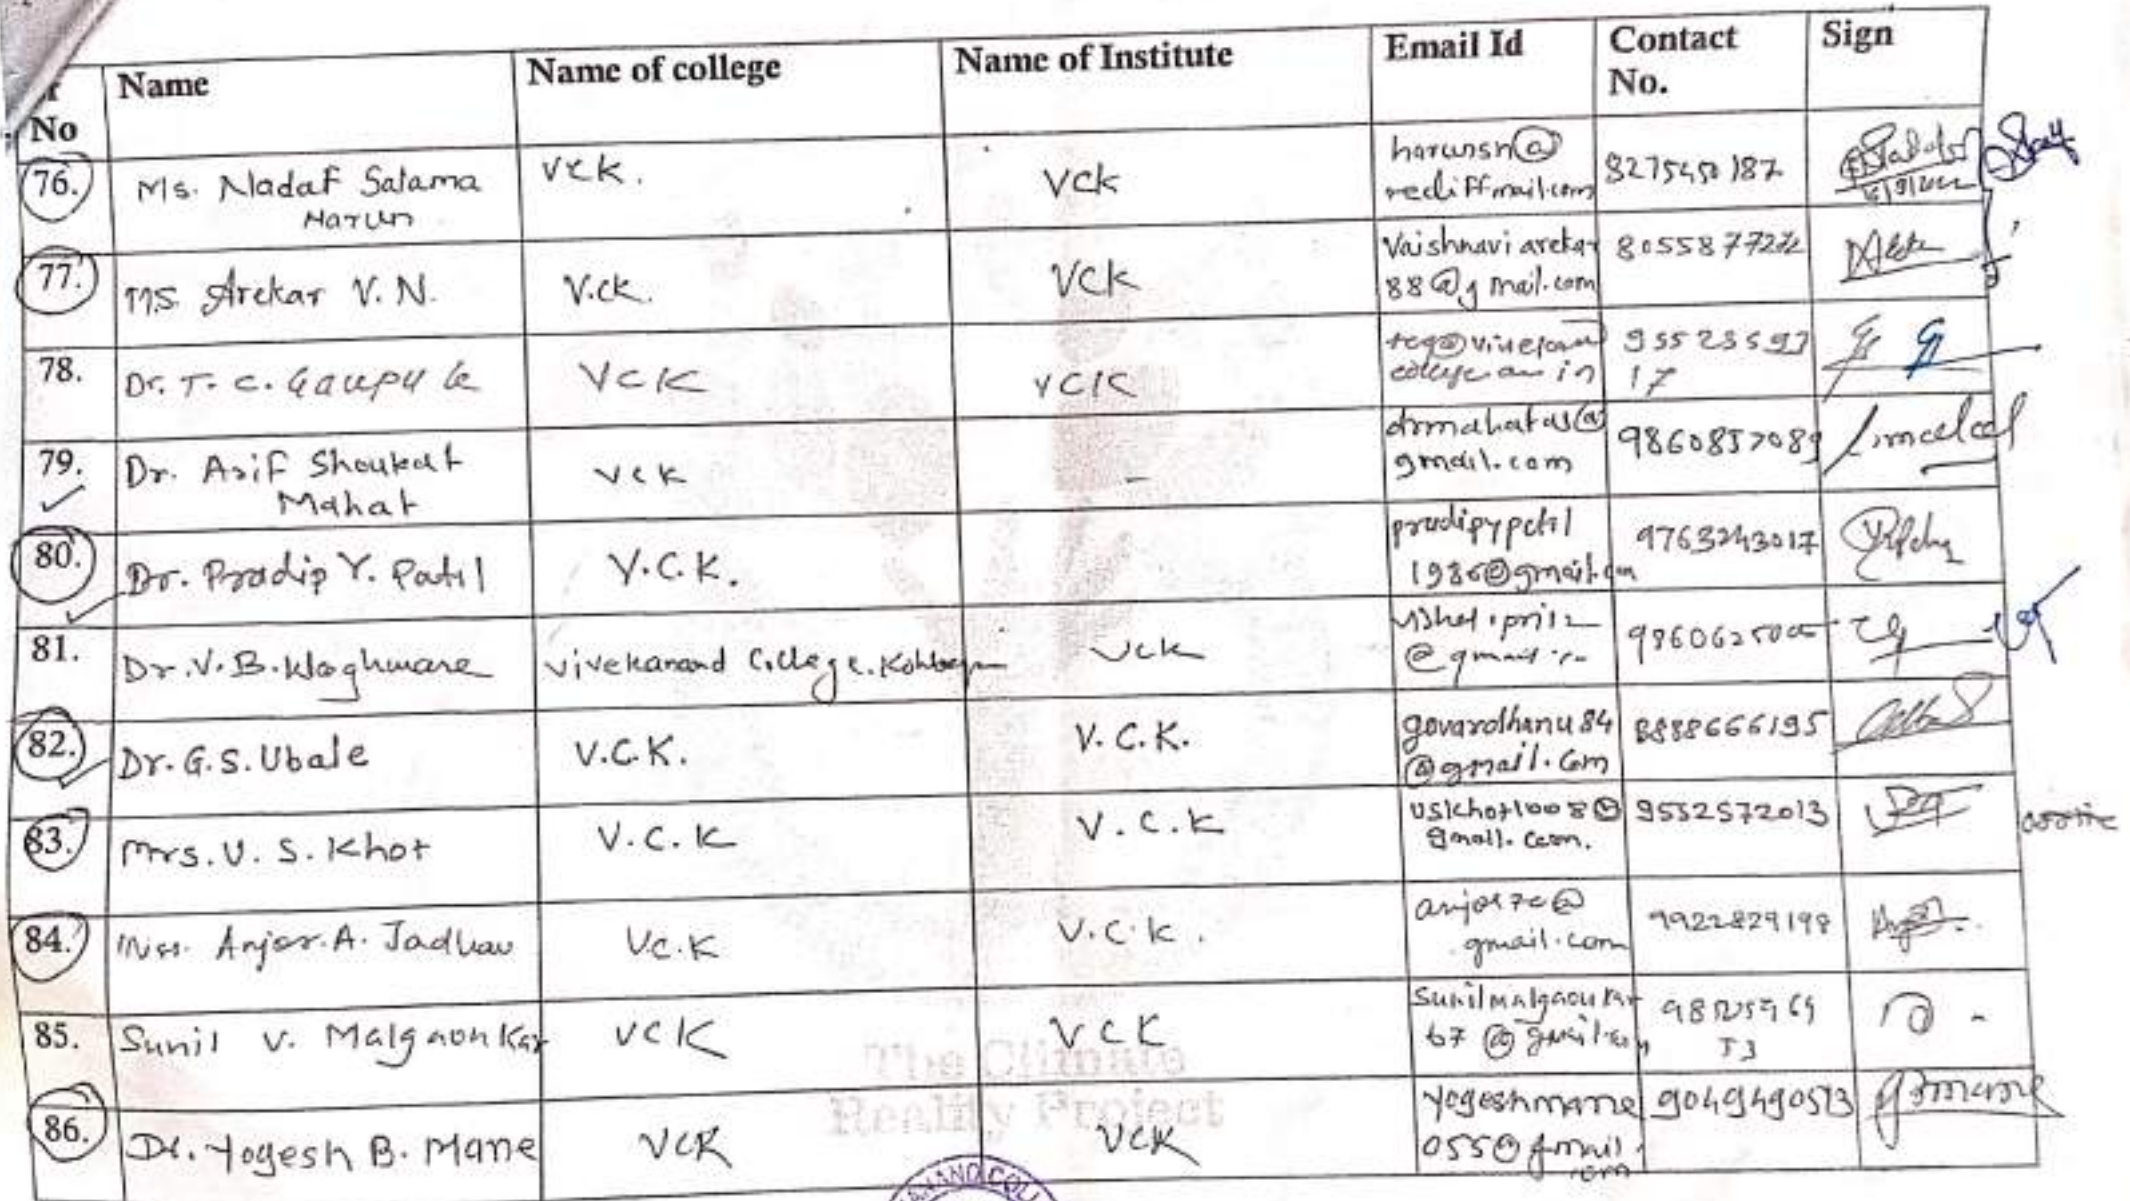 Name Name of college Name of Institute Email Id Contact No. Sign
No
76. Ms. Nadaf Salama Harun VCK. VCK harunsn@ rediffmail.com 8275450187
77. Ms Arekar V. N. V.CK. VCK Vaishnaviarekar 88@gmail.com
78. Dr. T. C. VCK VCK 17
79. Dr. Asif Shoukat Mahat VCK - drmahatas@ gmail.com 9860857089
80. Dr. Pradip Y. Patil V.C.K. pradipypatil 1986@gmail.com 9763243017
81. Dr. V. B. Waghmare Vivekanand College, VCK
82. Dr. G.S. Ubale V.C.K. V.C.K. govardhanu84 @gmail.com 8888666195
83. Mrs. U. S. Khot V.C.K V.C.K uskhot1008@ gmail.com. 9552572013
84. Anjar. A. Jadhav V.C.K V.C.K. gmail.com 9922829198
85. Sunil V. Malgaonkar VCK VCK Sunilmalgaonkar 67@
86. Dr. Yogesh B. Mane VCK VCK yogeshmane 055@gmail.com 9049490513
The Climate
Reality Project